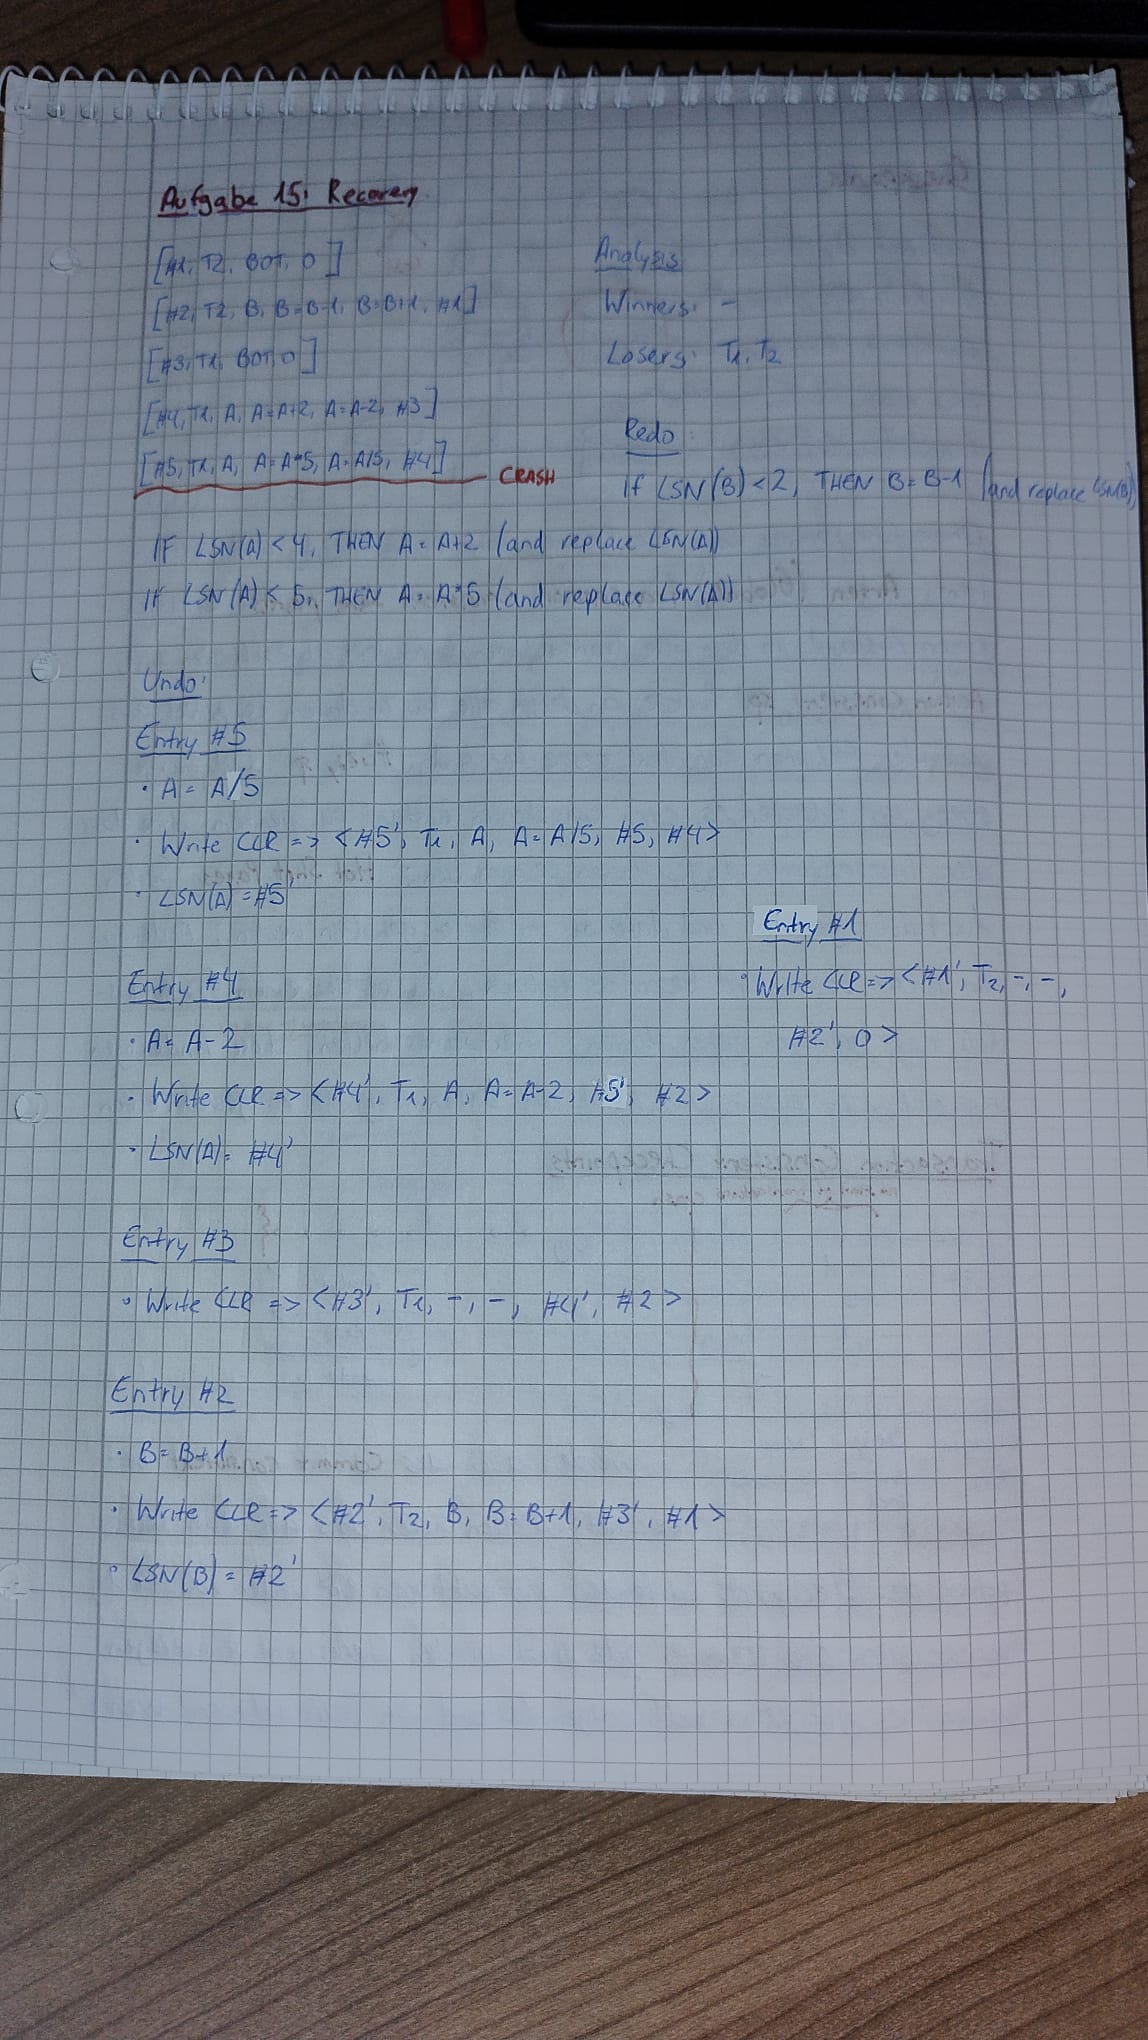 Aufgabe 15: Recovery
[#1, T2, BOT, 0]
[#2, T2, B, B=B-1, B=B+1, #1]
[#3, T1, BOT, 0]
[#4, T1, A, A=A+2, A=A-2, #3]
[#5, T1, A, A=A*5, A=A/5, #4]
CRASH
Analysis
Winners: -
Losers: T1, T2
Redo
If LSN(B) < 2, THEN B = B-1 (and replace LSN(B))
IF LSN(A) < 4, THEN A = A+2 (and replace LSN(A))
If LSN(A) < 5, THEN A = A*5 (and replace LSN(A))
Undo:
Entry #5
· A = A/5
· Write CLR => <#5', T1, A, A=A/5, #5, #4>
· LSN(A) = #5'
Entry #4
· A = A-2
· Write CLR => <#4', T1, A, A=A-2, #5', #2>
· LSN(A) = #4'
Entry #3
· Write CLR => <#3', T1, -, -, #4', #2>
Entry #2
· B = B+1
· Write CLR => <#2', T2, B, B=B+1, #3', #1>
· LSN(B) = #2'
Entry #1
· Write CLR => <#1', T2, -, -,
#2', 0>